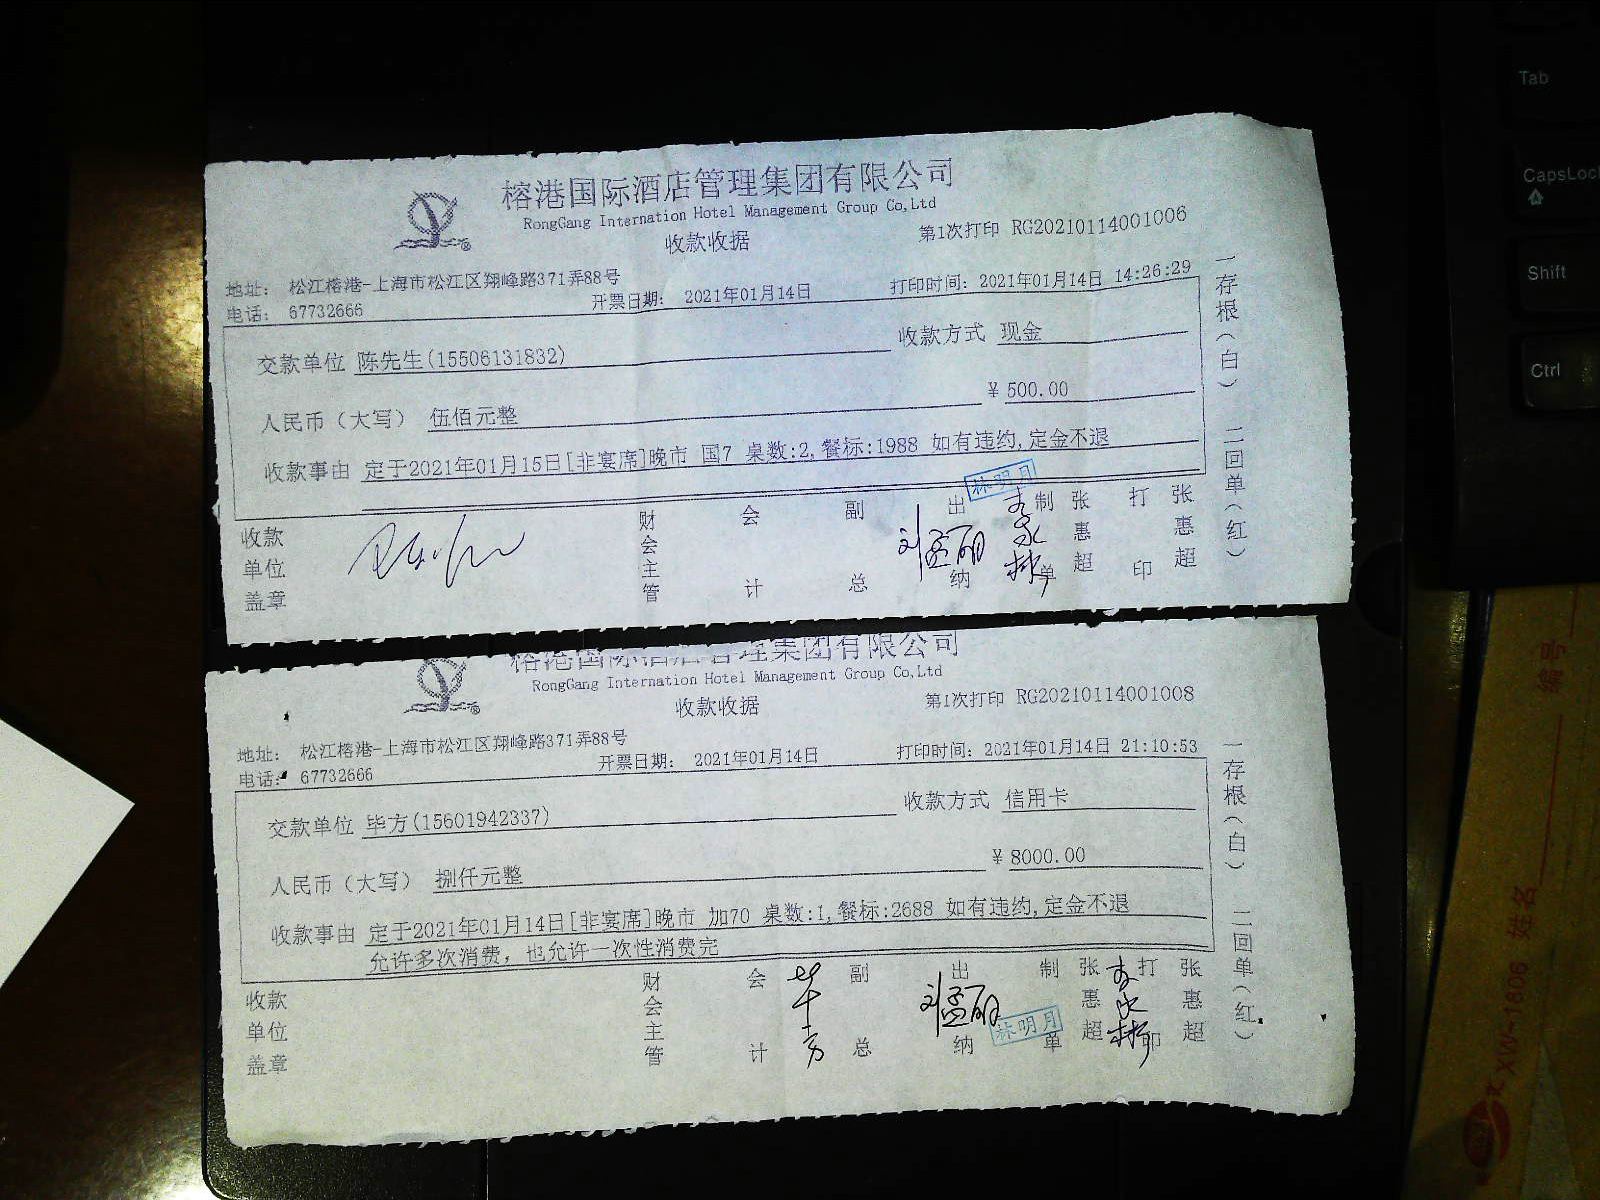 榕港国际酒店管理集团有限公司
RongGang Internation Hotel Management Group Co,Ltd
收款收据
第1次打印 RG20210114001006
地址： 松江榕港-上海市松江区翔峰路371弄88号
电话： 67732666
开票日期： 2021年01月14日
打印时间：2021年01月14日 14:26:29
交款单位 陈先生(15506131832)
收款方式 现金
人民币（大写） 伍佰元整
￥500.00
收款事由 定于2021年01月15日[非宴席]晚市 国7 桌数:2,餐标:1988 如有违约,定金不退
收款单位盖章
财会主管
会计
副总
出纳
刘孟丽
林明月
制单
张惠超
打印
张惠超
一存根（白）
二回单（红）
榕港国际酒店管理集团有限公司
RongGang Internation Hotel Management Group Co,Ltd
收款收据
第1次打印 RG20210114001008
地址： 松江榕港-上海市松江区翔峰路371弄88号
电话： 67732666
开票日期： 2021年01月14日
打印时间：2021年01月14日 21:10:53
交款单位 毕方(15601942337)
收款方式 信用卡
人民币（大写） 捌仟元整
￥8000.00
收款事由 定于2021年01月14日[非宴席]晚市 加70 桌数:1,餐标:2688 如有违约,定金不退
允许多次消费，也允许一次性消费完
收款单位盖章
财会主管
会计
毕方
副总
出纳
刘孟丽
林明月
制单
张惠超
打印
张惠超
一存根（白）
二回单（红）
Tab
CapsLoc
Shift
Ctrl
编号
姓名
XW-1806